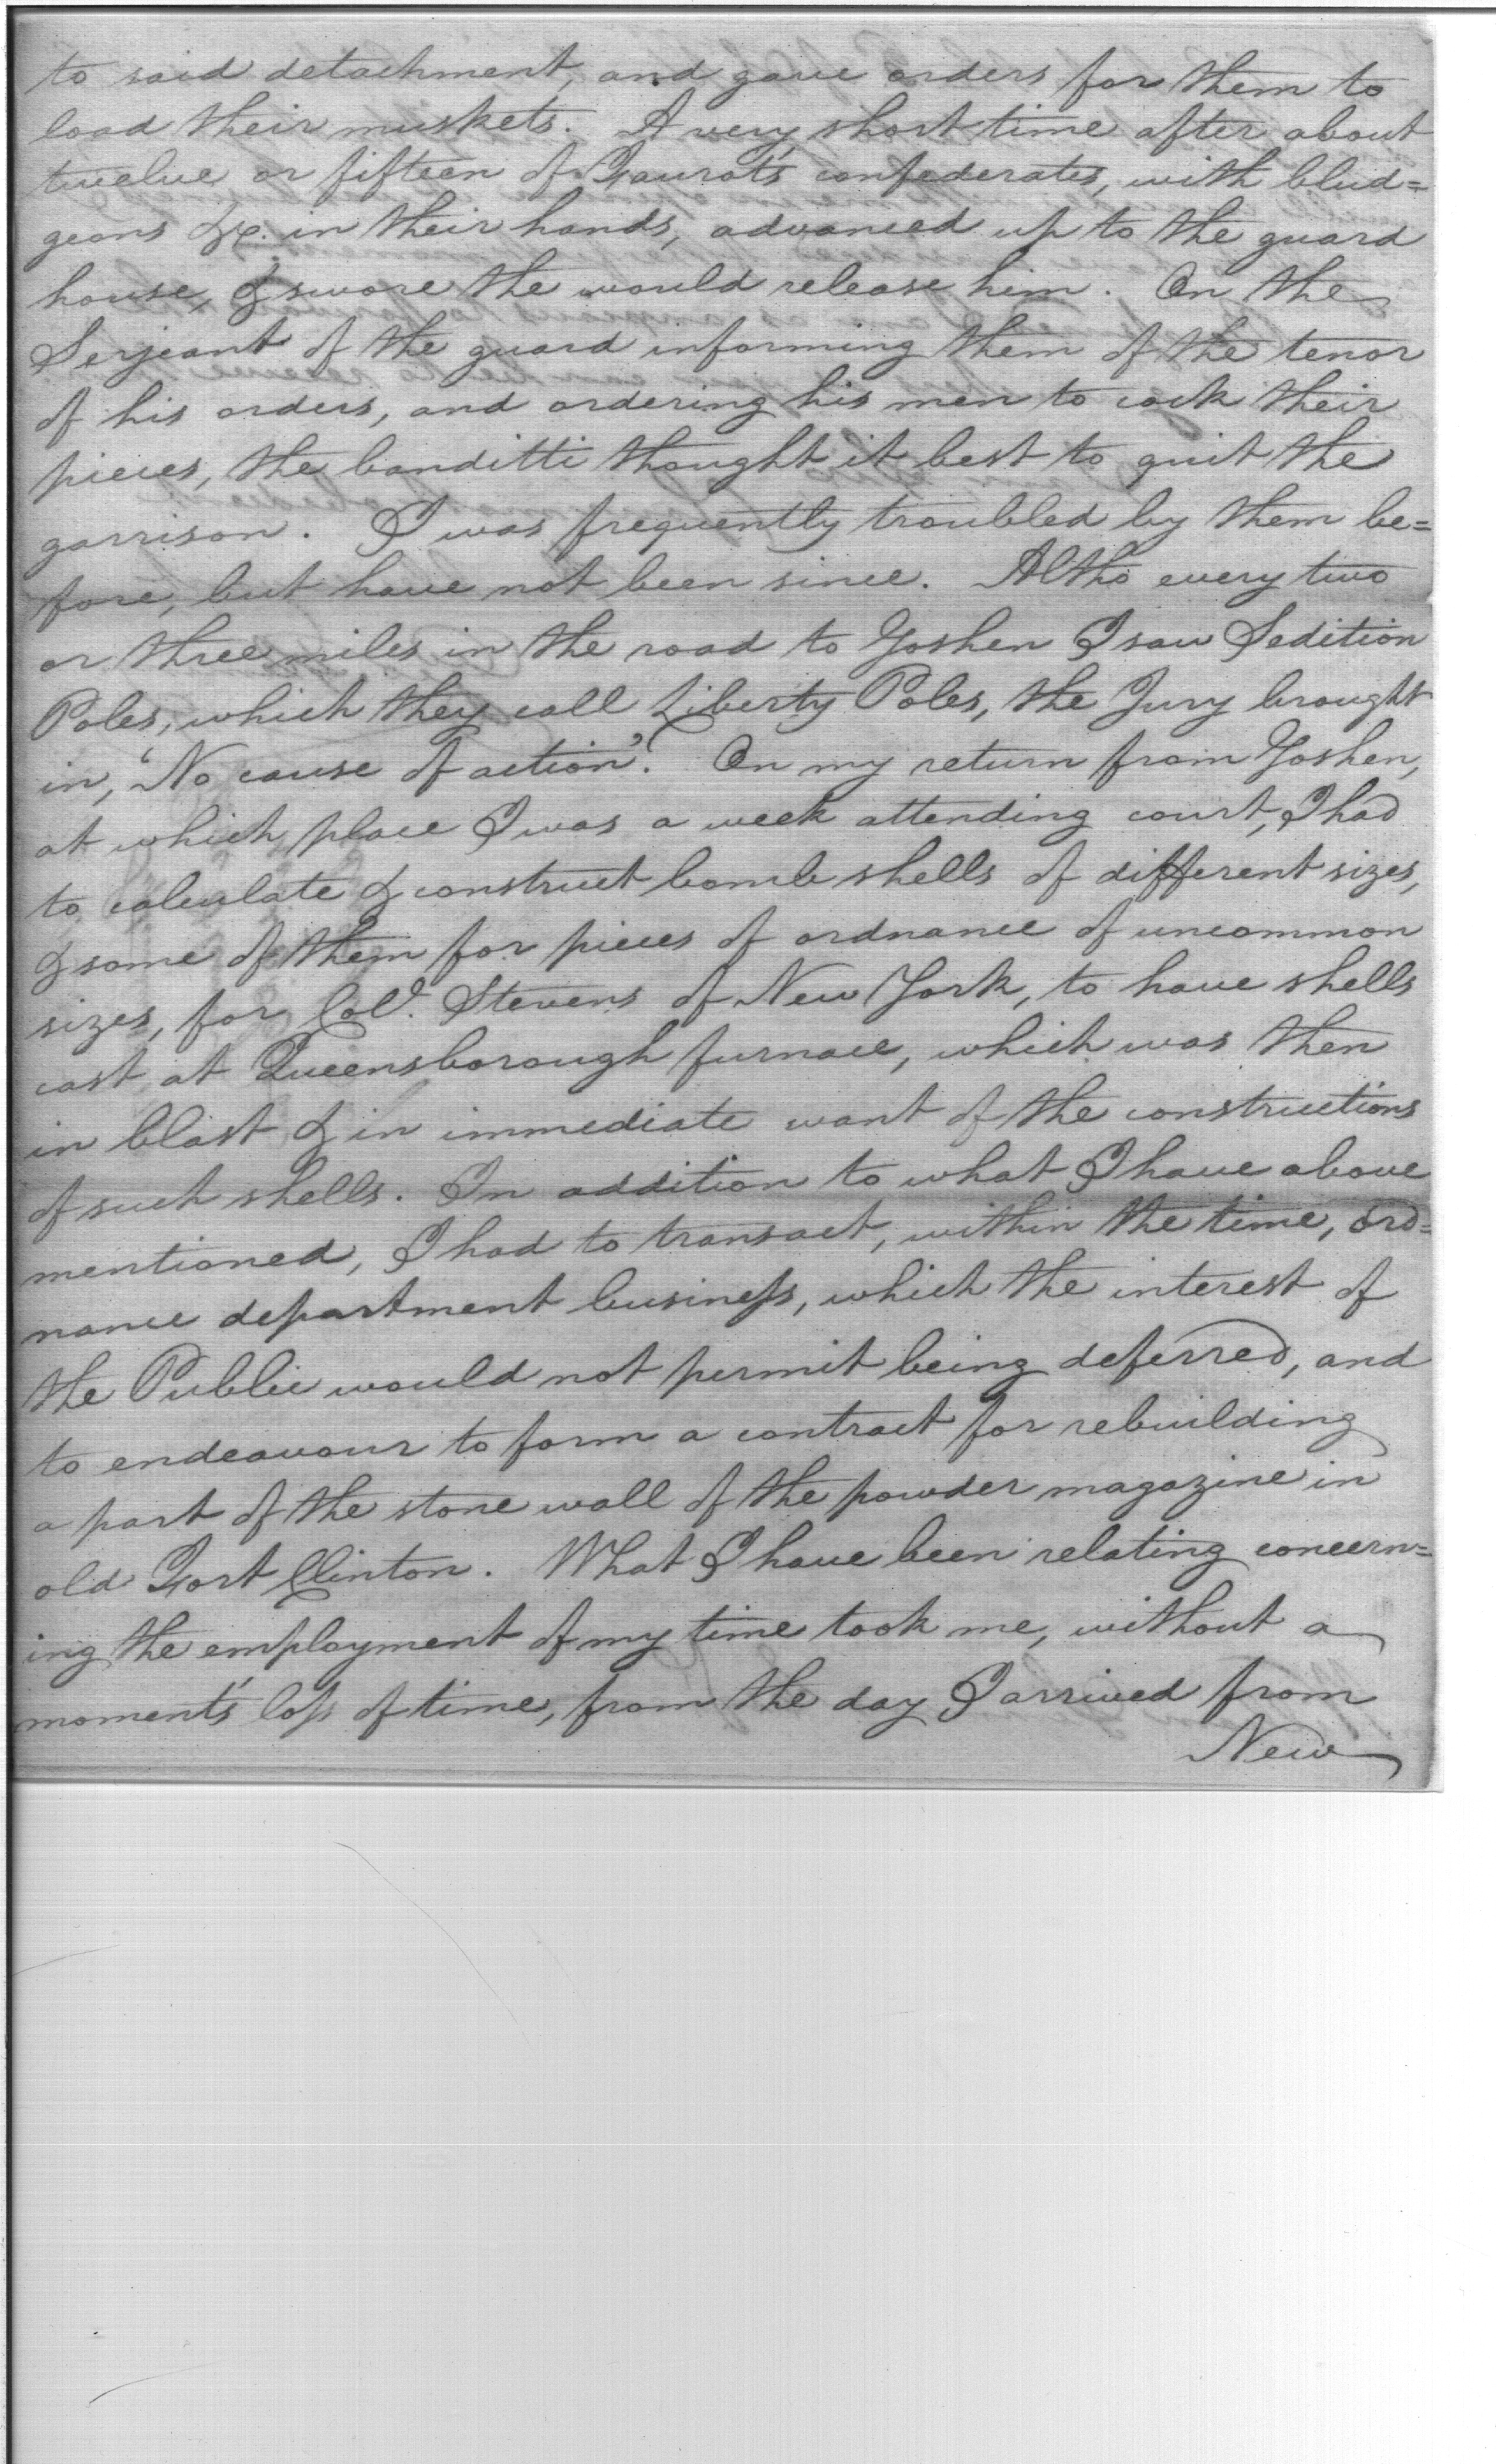 to said detachment, and gave orders for them to
load their muskets. A very short time after about
twelve or fifteen of Faurot's confederates, with blud=
geons &c. in their hands, advanced up to the guard
house, & swore the would release him. On the
Serjeant of the guard informing them of the tenor
of his orders, and ordering his men to cock their
pieces, the banditti thought it best to quit the
garrison. I was frequently troubled by them be=
fore, but have not been since. Altho' every two
or three miles in the road to Goshen I saw Sedition
Poles, which they call Liberty Poles, the Jury brought
in, 'No cause of action'. On my return from Goshen,
at which place I was a week attending court, I had
to calculate & construct bomb shells of different sizes,
& some of them for pieces of ordnance of uncommon
sizes, for Col. Stevens of New York, to have shells
cast at Queensborough furnace, which was then
in blast & in immediate want of the constructions
of such shells. In addition to what I have above
mentioned, I had to transact, within the time, ord=
nance department business, which the interest of
the Public would not permit being deferred, and
to endeavour to form a contract for rebuilding
a part of the stone wall of the powder magazine in
old Fort Clinton. What I have been relating concern=
ing the employment of my time took me, without a
moment's loss of time, from the day I arrived from
New